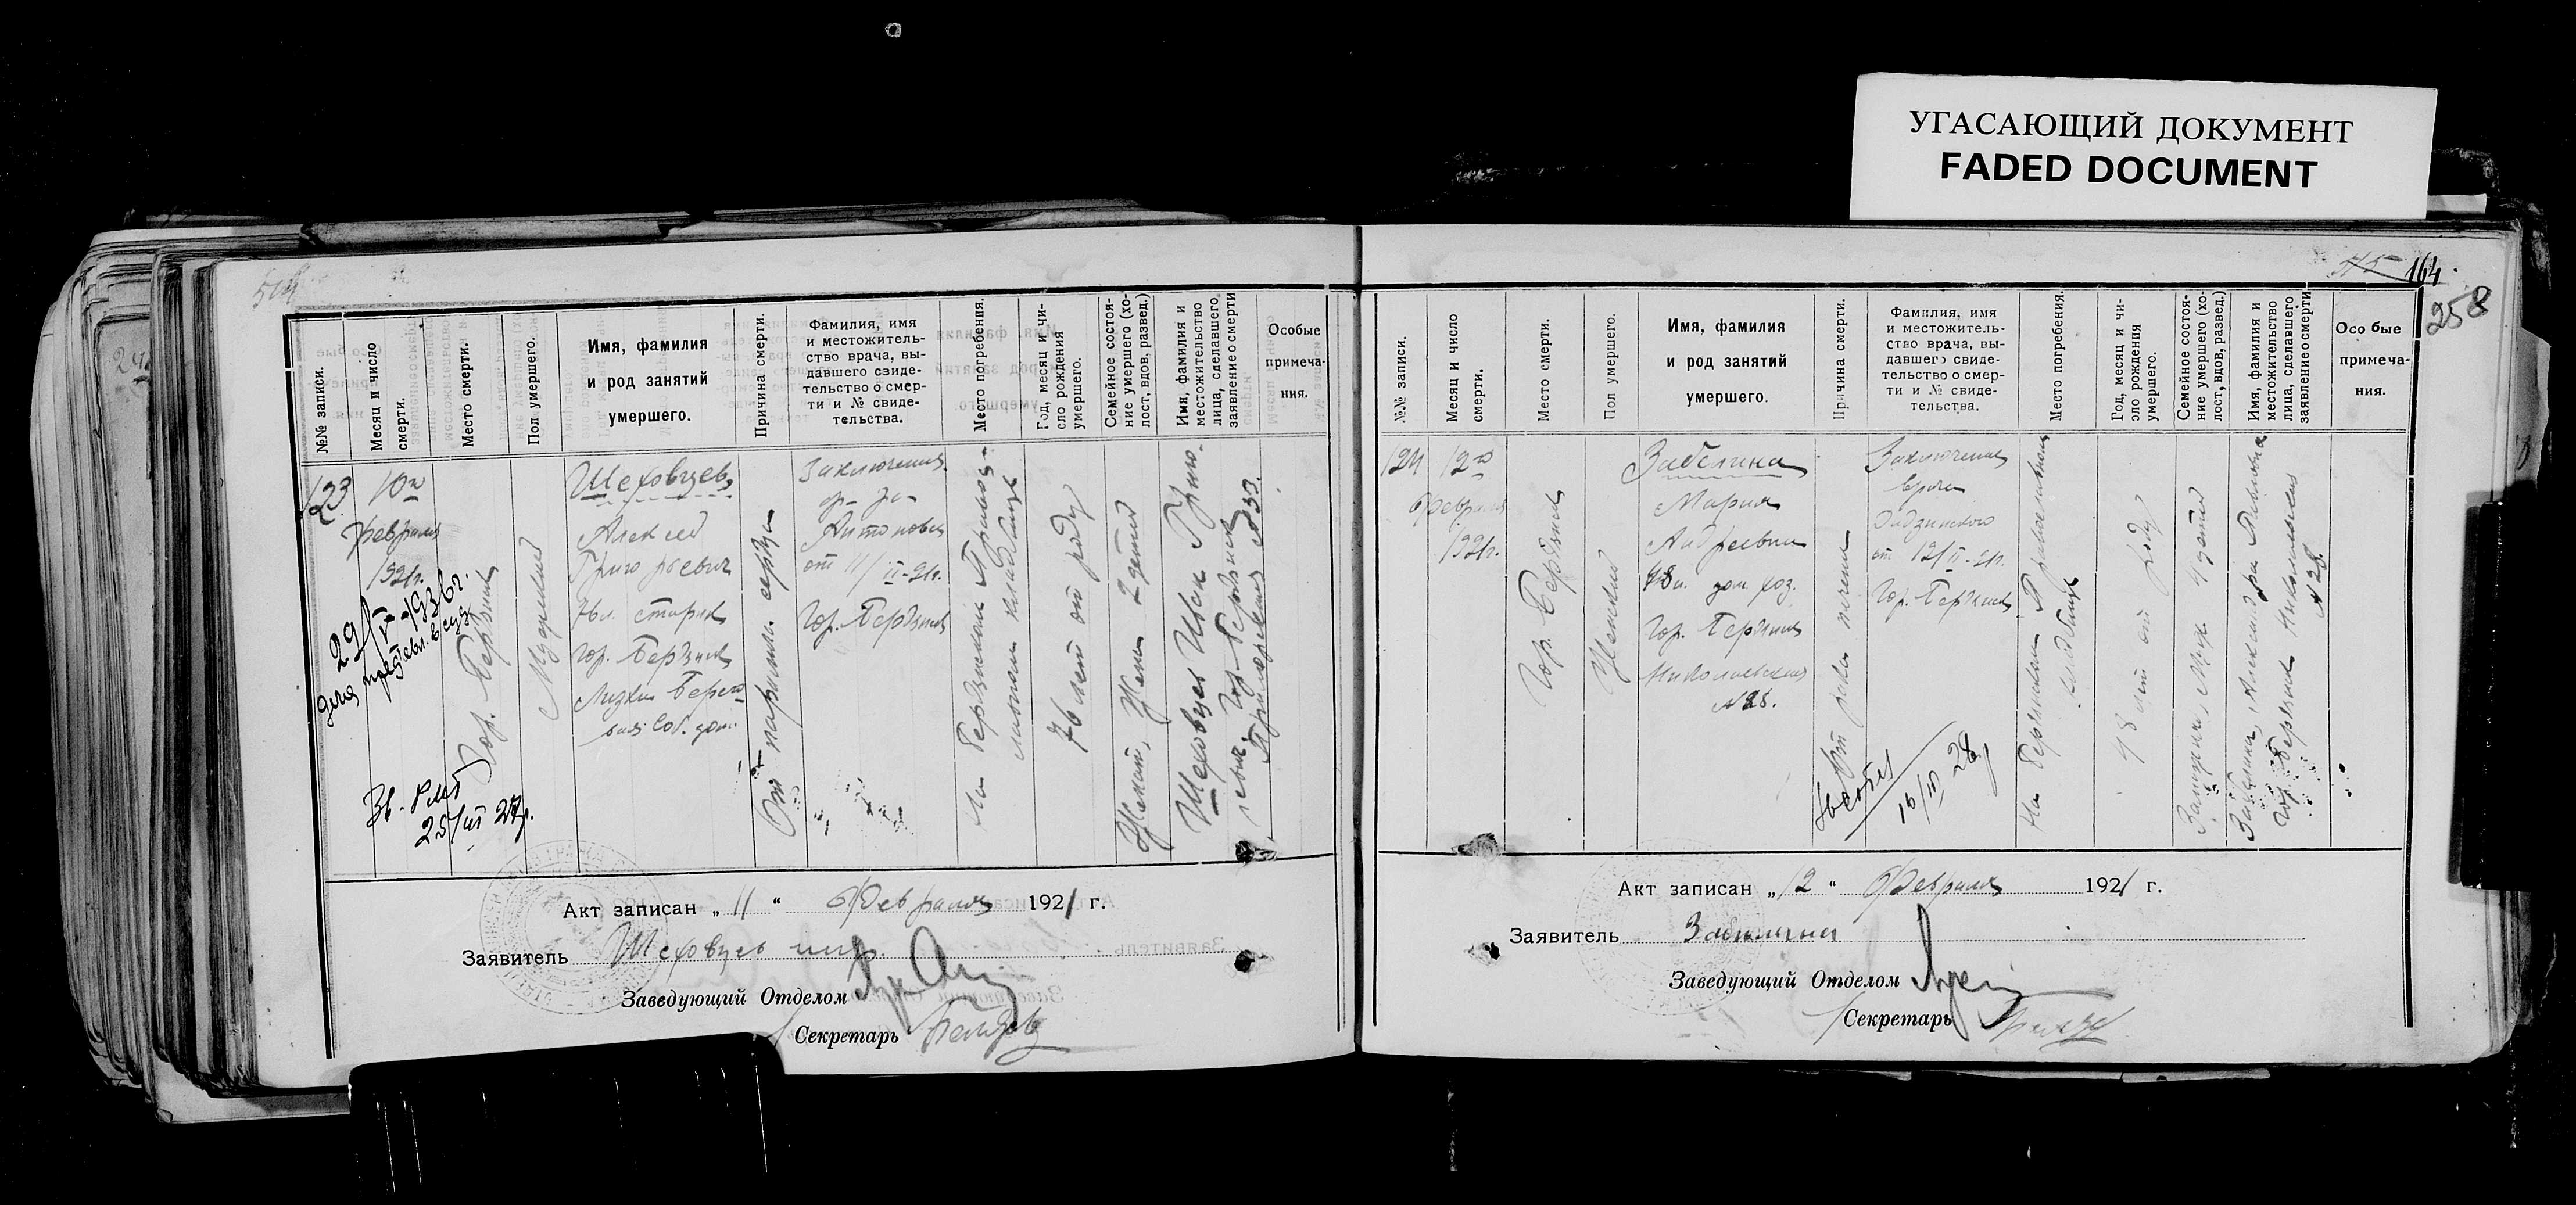 УГАСАЮЩИЙ ДОКУМЕНТ
FADED DOCUMENT
№№ записи.
Месяц и число
смерти.
Место смерти.
Пол умершего.
Имя, фамилия
и род занятий
умершего.
Причина смерти.
Фамилия, имя
и местожитель-
ство врача, вы-
давшего свиде-
тельство о смер-
ти и № свиде-
тельства.
Место погребения.
Год, месяц и чи-
сло рождения
умершего.
Семейное состоя-
ние умершего (хо-
лост, вдов, развед.)
Имя, фамилия и
местожительство
лица, сделавшего
заявление о смерти
Особые
примеча-
ния.
123
10го
февраля
1921г.
Гор. Бердянск
Мужский
Шеховцев
Алексей
Григорьевич
76л. старик
Гор. Бердянск
Лизки Берего
вая соб. дом.
От паралича сердца
Заключения
д-ра
Антоновича
от 11/II-21г.
Гор. Бердянск
На Бердянском Правос-
лавном кладбище
76 лет от роду
Женат, Жена 2 детей
Шеховцев Иван Григо-
рьевич, Гор. Бердянск
№ 33.
29/V-1936г.
для пред'явл. в суд
25/III 27г.
Акт записан „ 11 “ Февраля 1921 г.
Заявитель Шеховцев
Заведующий Отделом
Секретарь
164
258
№№ записи.
Месяц и число
смерти.
Место смерти.
Пол умершего.
Имя, фамилия
и род занятий
умершего.
Причина смерти.
Фамилия, имя
и местожитель-
ство врача, вы-
давшего свиде-
тельство о смер-
ти и № свиде-
тельства.
Место погребения.
Год, месяц и чи-
сло рождения
умершего.
Семейное состоя-
ние умершего (хо-
лост, вдов, развед.)
Имя, фамилия и
местожительство
лица, сделавшего
заявление о смерти
Особые
примеча-
ния.
124
12го
Февраля
1921г.
Гор. Бердянск
Женский
Забелина
Мария
Андреевна
48л. дом. хоз.
Гор. Бердянск
Николаевская
№28.
От рака печени
Заключения
врача
от 12/II-21г.
Гор. Бердянск
На Бердянском Православном
кладбище
48 лет от роду
Замужем, Муж 4 детей
Забелина, Александра Павловна
Гор. Бердянск Николаевская
№ 28.
16/III 28
Акт записан „ 12 “ Февраля 1921 г.
Заявитель Забелина
Заведующий Отделом
Секретарь